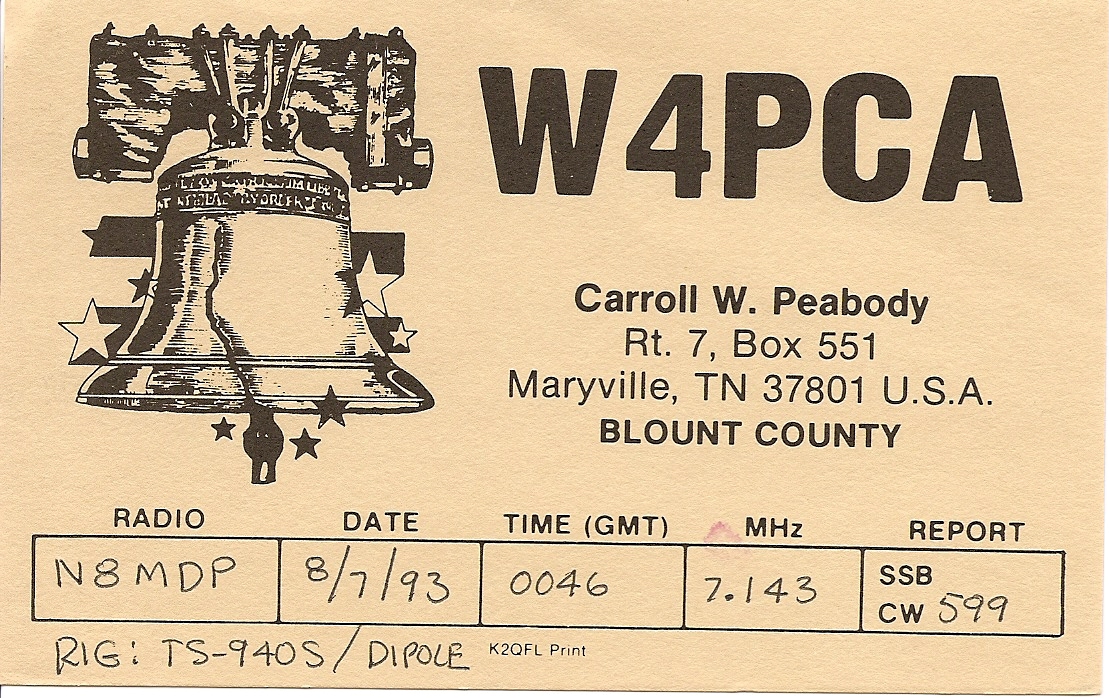 W4PCA
Carroll W. Peabody
Rt. 7, Box 551
Maryville, TN 37801 U.S.A.
BLOUNT COUNTY
RADIO DATE TIME (GMT) MHz REPORT
N8MDP 8/7/93 0046 7.143 SSB
CW 599
RIG: TS-940S/DIPOLE K2QFL Print